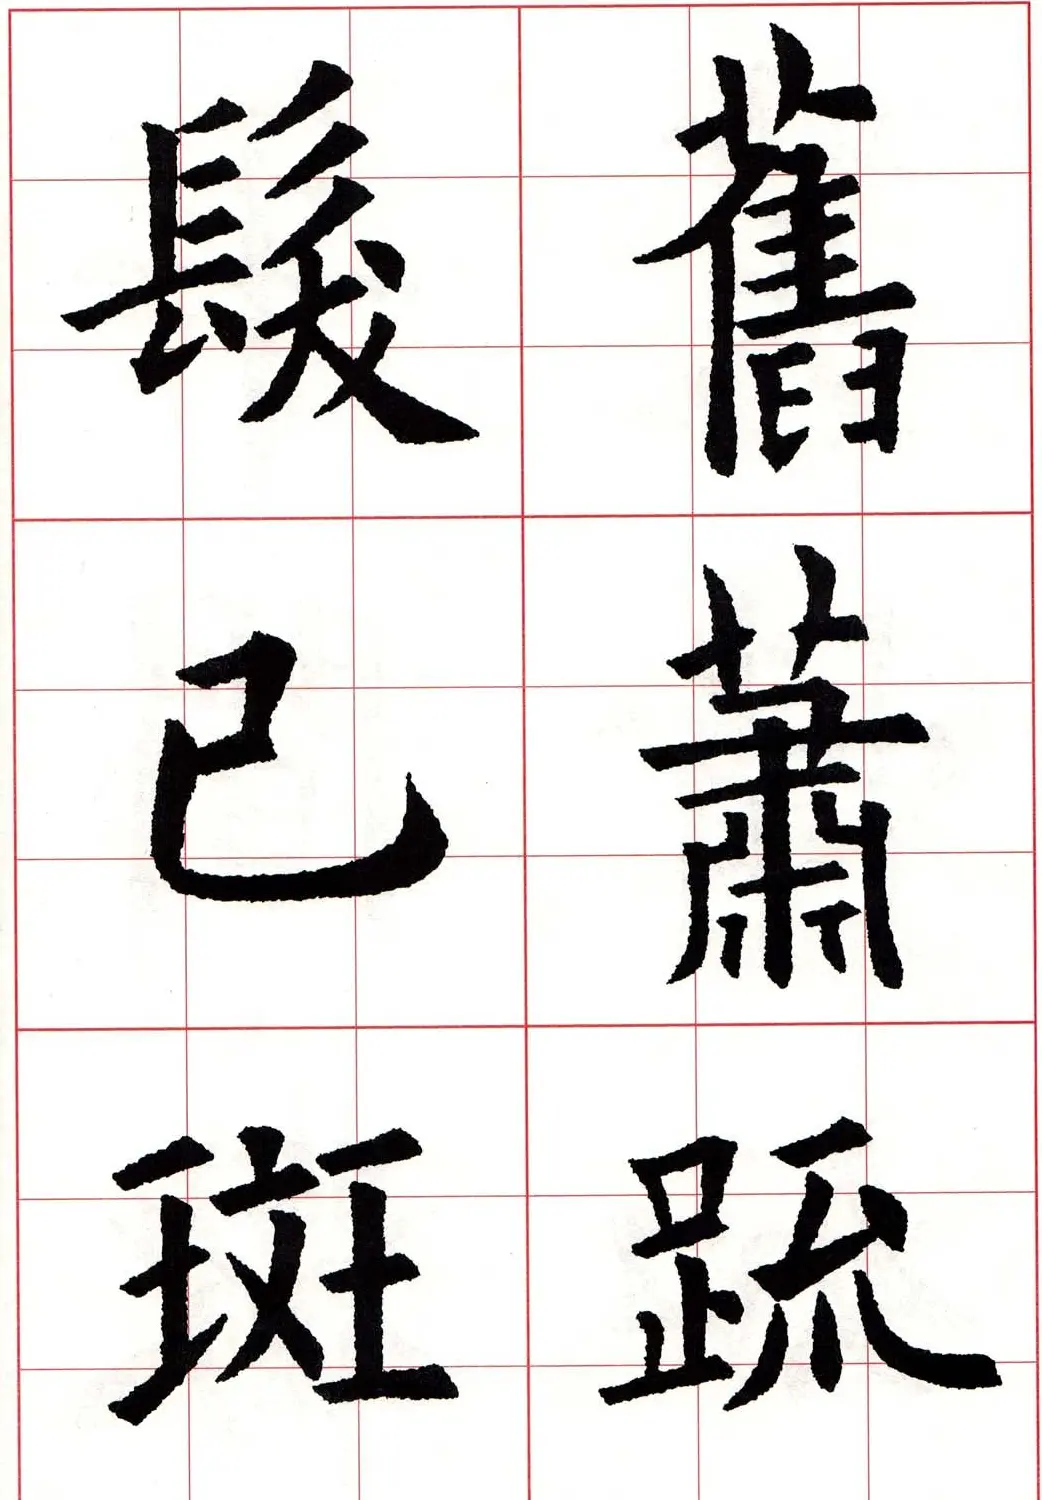 舊蕭疏
髮已斑